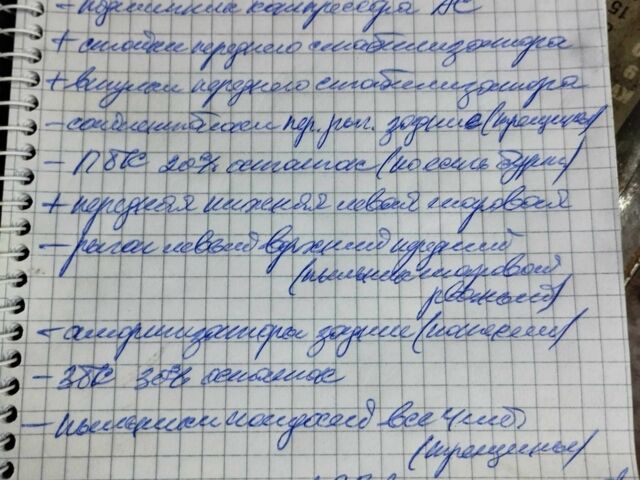 - подшипник компрессора АС
+ стойки переднего стабилизатора
+ втулки переднего стабилизатора
- сайлентблоки пер. рыч. задние (трещины)
- ПТК 20% остаток (но есть бурт)
+ передняя нижняя левая шаровая
- рычаг левый верхний передний
(пыльник шаровой
рваный)
- амортизаторы задние
- ЗТК 30% остаток
- пыльники все 4 шт
(трещины)